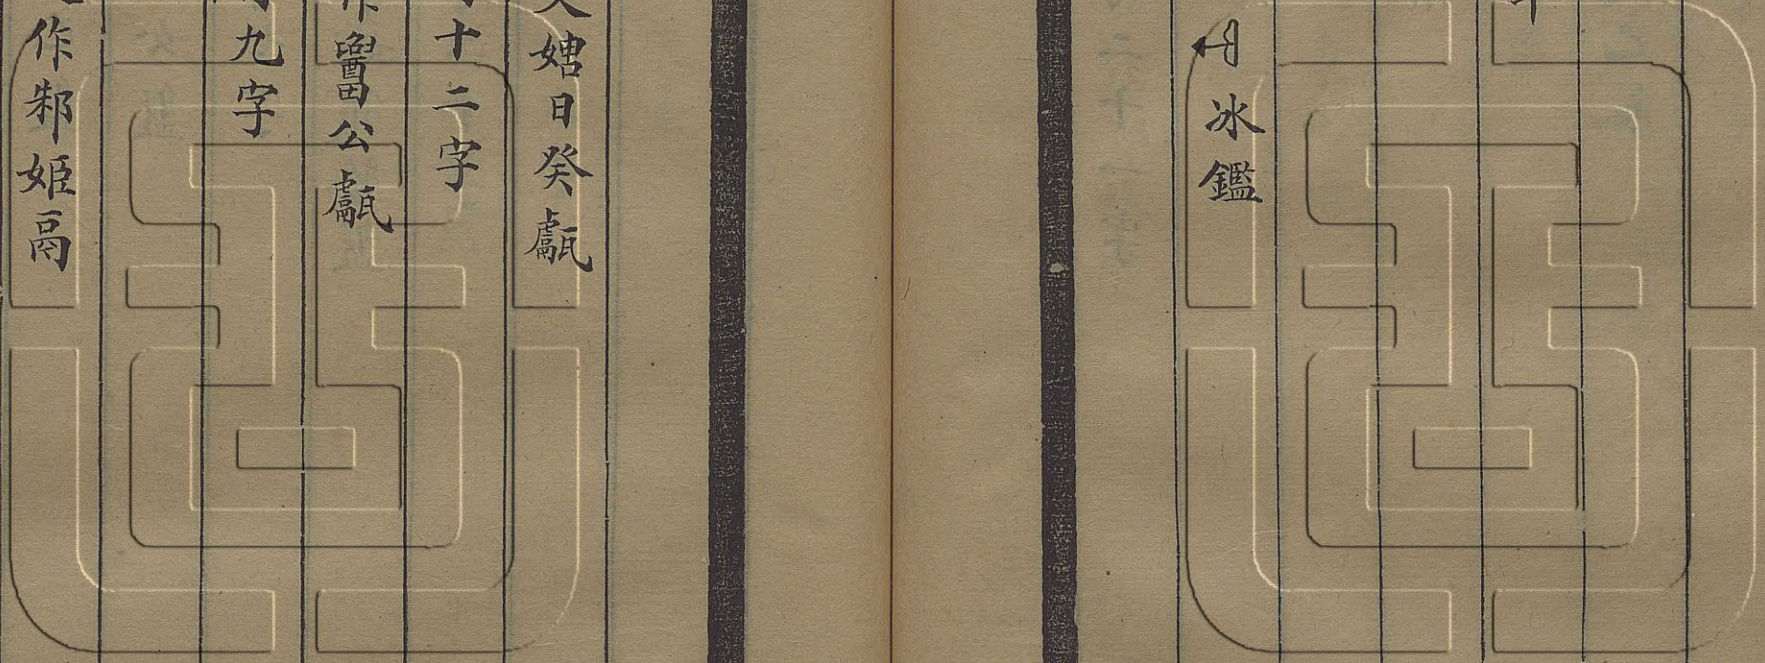 冰鑑
日癸甗
十二字
公甗
九字
作邾姬鬲